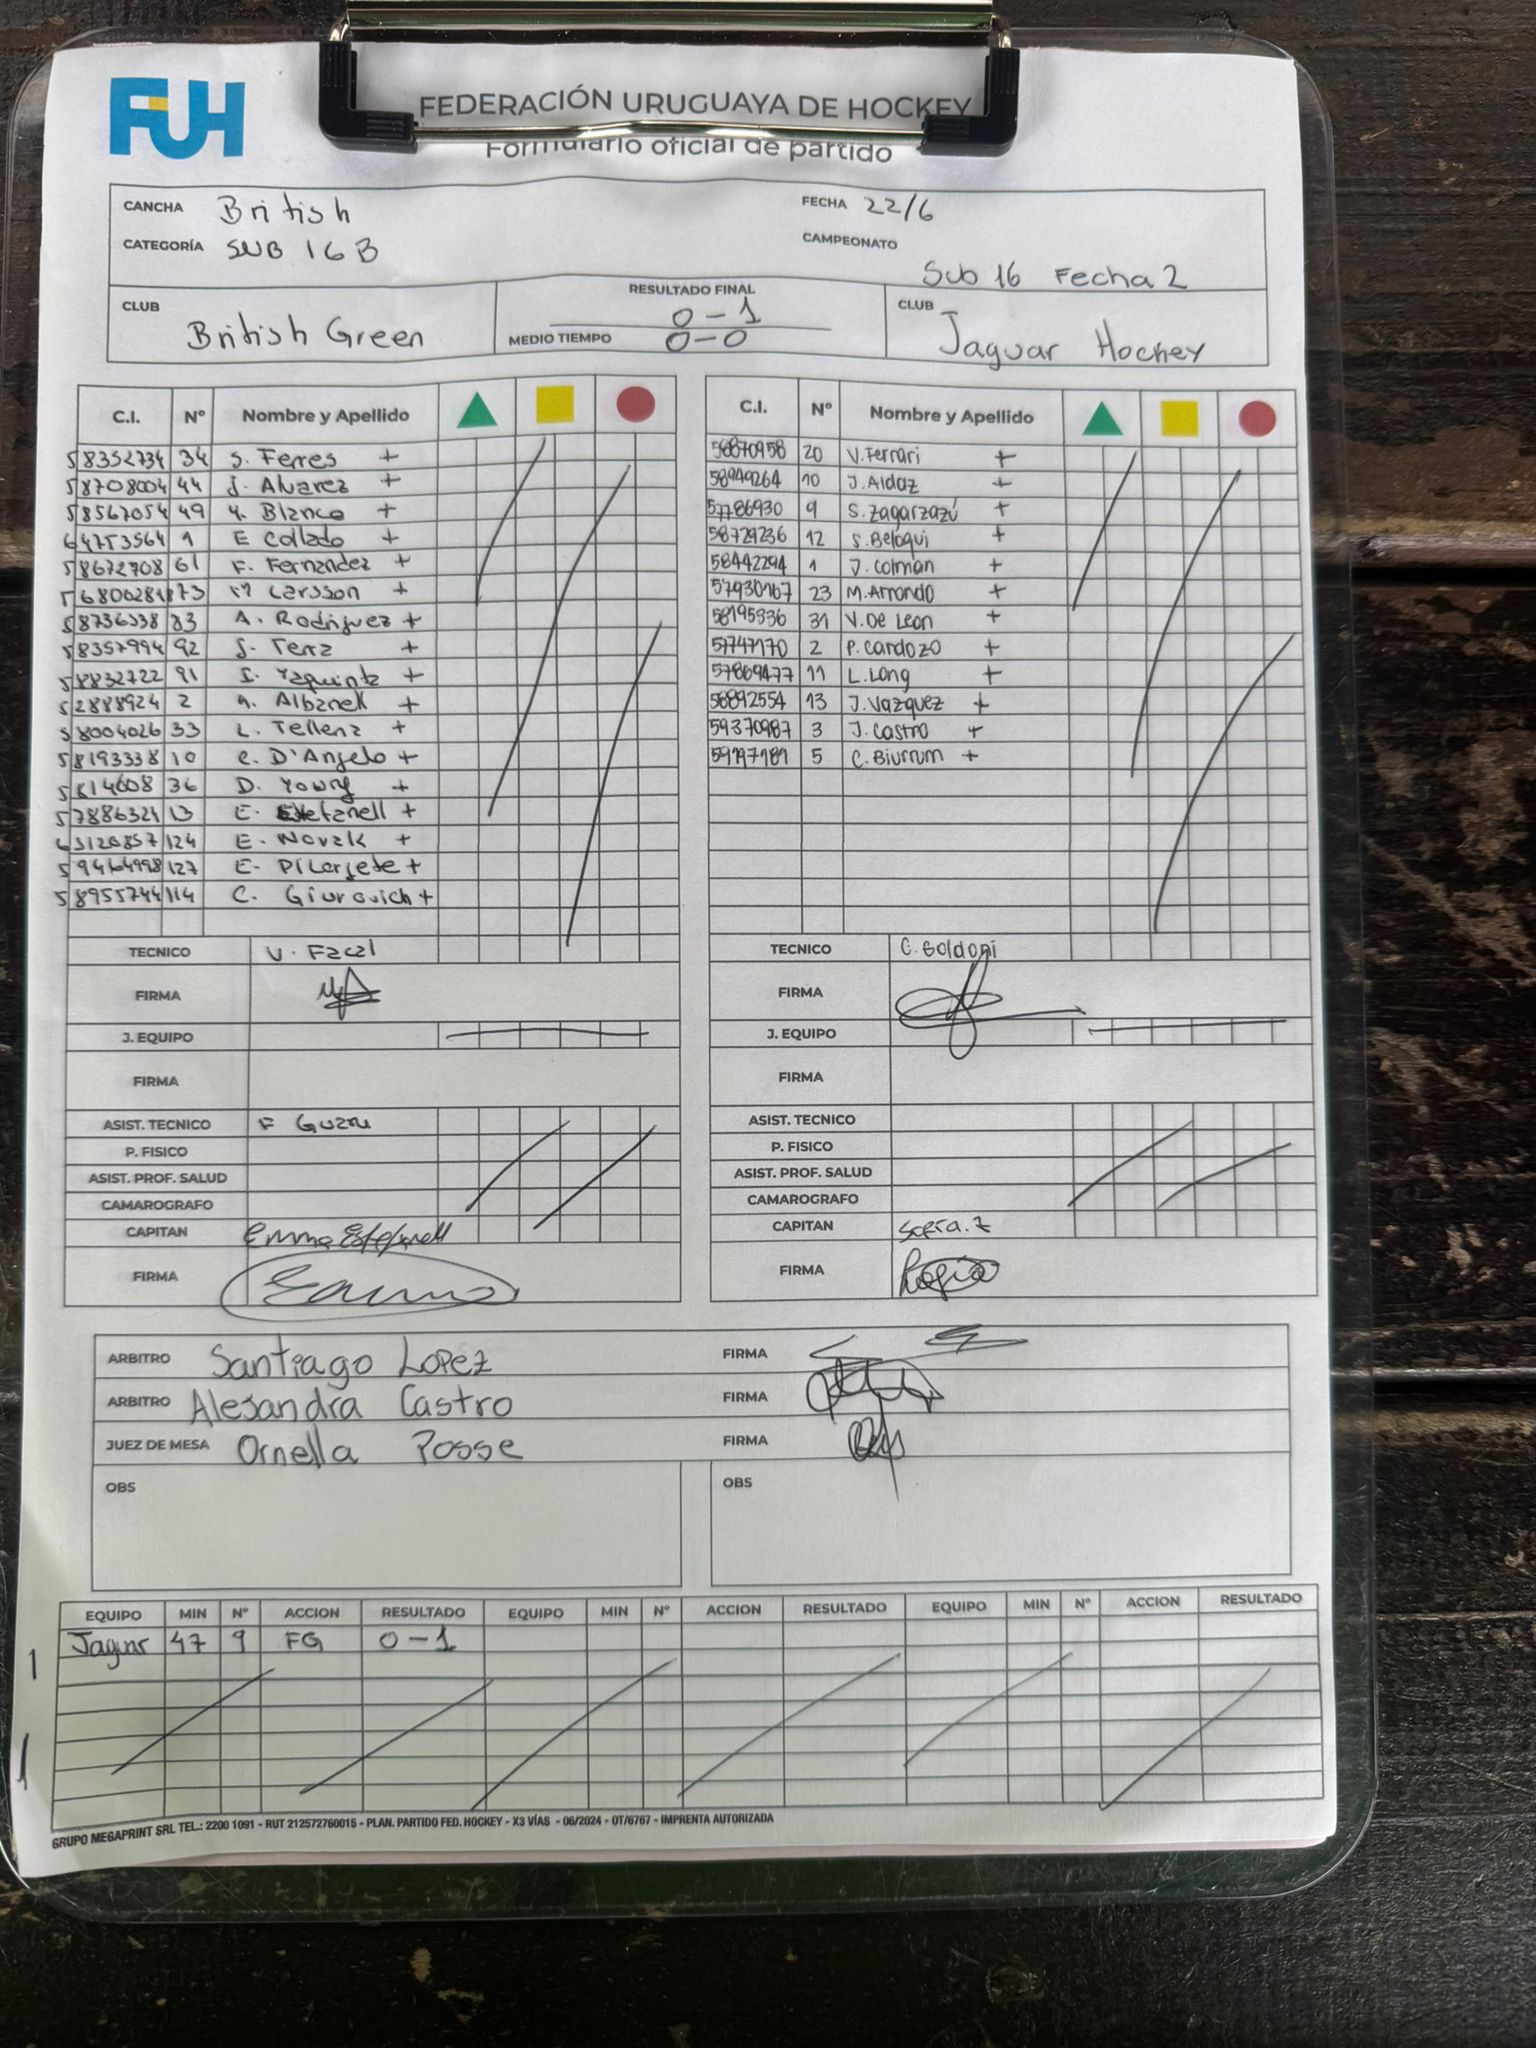 FUH
FEDERACIÓN URUGUAYA DE HOCKEY
Formulario oficial de partido
CANCHA British FECHA 22/6
CATEGORÍA SUB 16 B CAMPEONATO Sub 16 Fecha 2
CLUB British Green RESULTADO FINAL 0 - 1 CLUB Jaguar Hockey
MEDIO TIEMPO 0-0
C.I. Nº Nombre y Apellido
58352734 34 S. Ferres +
58708004 44 J. Alvarez +
58567054 49 Blanco +
64753564 1 E Collado +
58672708 61 F. Fernandez +
73 Larsson +
58736338 83 A. Rodriguez +
58357994 92 J. Terra +
58832722 91 +
52888924 2 Albanell +
58004026 33 L. Tellenz +
58193338 10 C. D'Angelo +
5814608 36 D. Young +
57886321 13 E. +
63120857 124 E. Novak +
59464998 127 E. +
58955744 114 C. Giurovich +
TECNICO V. Facal
FIRMA
J. EQUIPO
FIRMA
ASIST. TECNICO F
P. FISICO
ASIST. PROF. SALUD
CAMAROGRAFO
CAPITAN Emma Estefanell
FIRMA
C.I. Nº Nombre y Apellido
56870958 20 V. Ferrari +
58949264 10 J. Aldaz +
57786930 9 S. Zagarzazú +
58729236 12 S. Beloqui +
58442294 1 J. Colman +
57930167 23 M. Arrondo +
58195336 31 V. De Leon +
57747170 2 P. Cardozo +
57869477 11 L. Long +
56892554 13 J. Vazquez +
59370987 3 J. Castro +
59197181 5 C. Biurrum +
TECNICO C. Goldoni
FIRMA
J. EQUIPO
FIRMA
ASIST. TECNICO
P. FISICO
ASIST. PROF. SALUD
CAMAROGRAFO
CAPITAN
FIRMA
ARBITRO Santiago Lopez FIRMA
ARBITRO Alejandra Castro FIRMA
JUEZ DE MESA Ornella Posse FIRMA
OBS OBS
EQUIPO MIN Nº ACCION RESULTADO EQUIPO MIN Nº ACCION RESULTADO EQUIPO MIN Nº ACCION RESULTADO
Jaguar 47 9 FG 0 - 1
GRUPO MEGAPRINT SRL TEL.: 2200 1091 - RUT 212572760015 - PLAN. PARTIDO FED. HOCKEY - X3 VÍAS - 06/2024 - OT/6767 - IMPRENTA AUTORIZADA